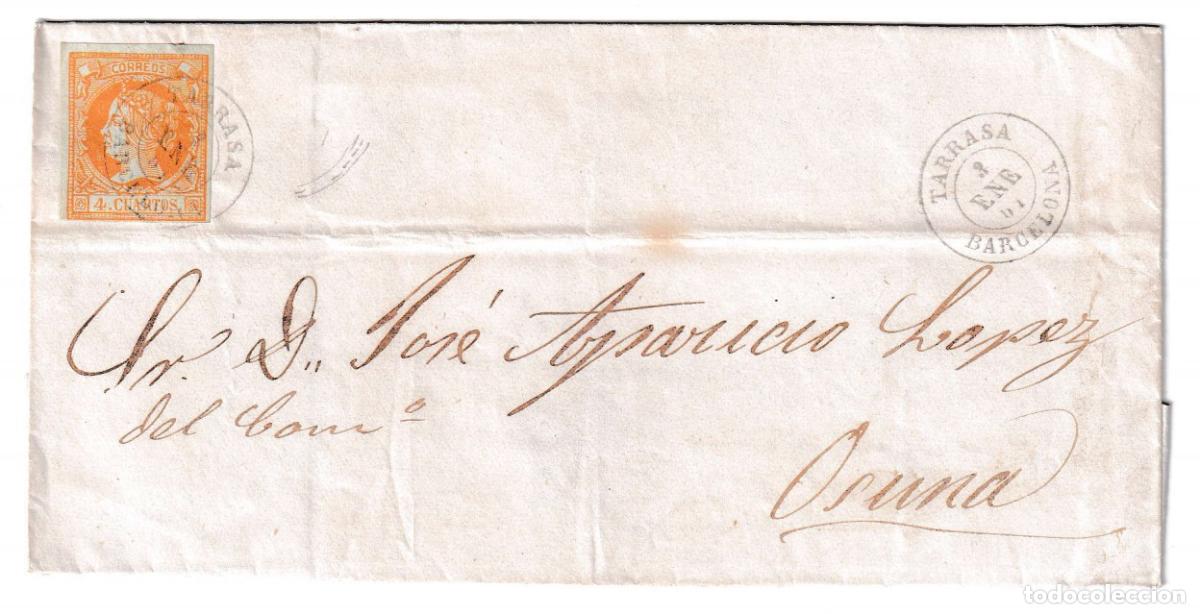 CORREOS
4. CUARTOS.
TARRASA
TARRASA
3
ENE
61
BARCELONA
Sr. D.,, José Aparicio Lopez
del Comº
Osuna
todocoleccion